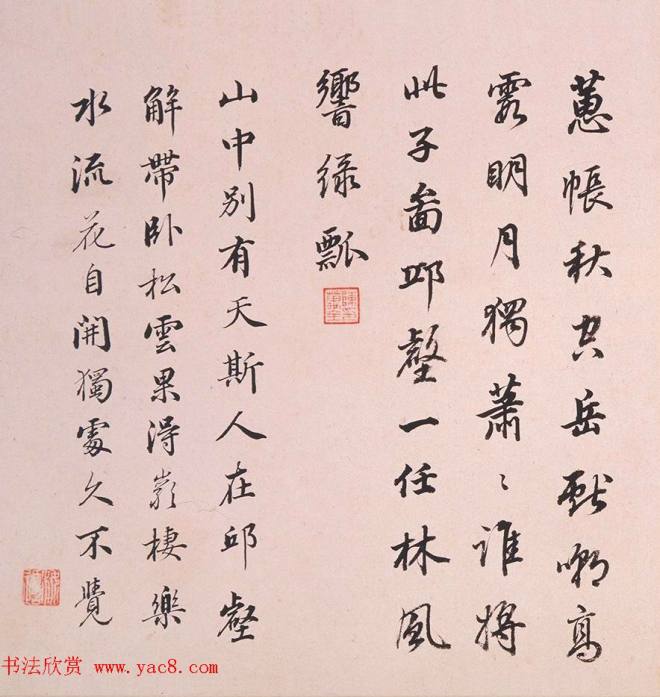 蕙帳秋空岳獻嘲高
霞明月獨蕭〻誰將
此子啚邱壑一任林風
響綠瓢
山中別有天斯人在邱壑
解帶卧松雲果得巖棲樂
水流花自開獨處久不覺
书法欣赏 www.yac8.com